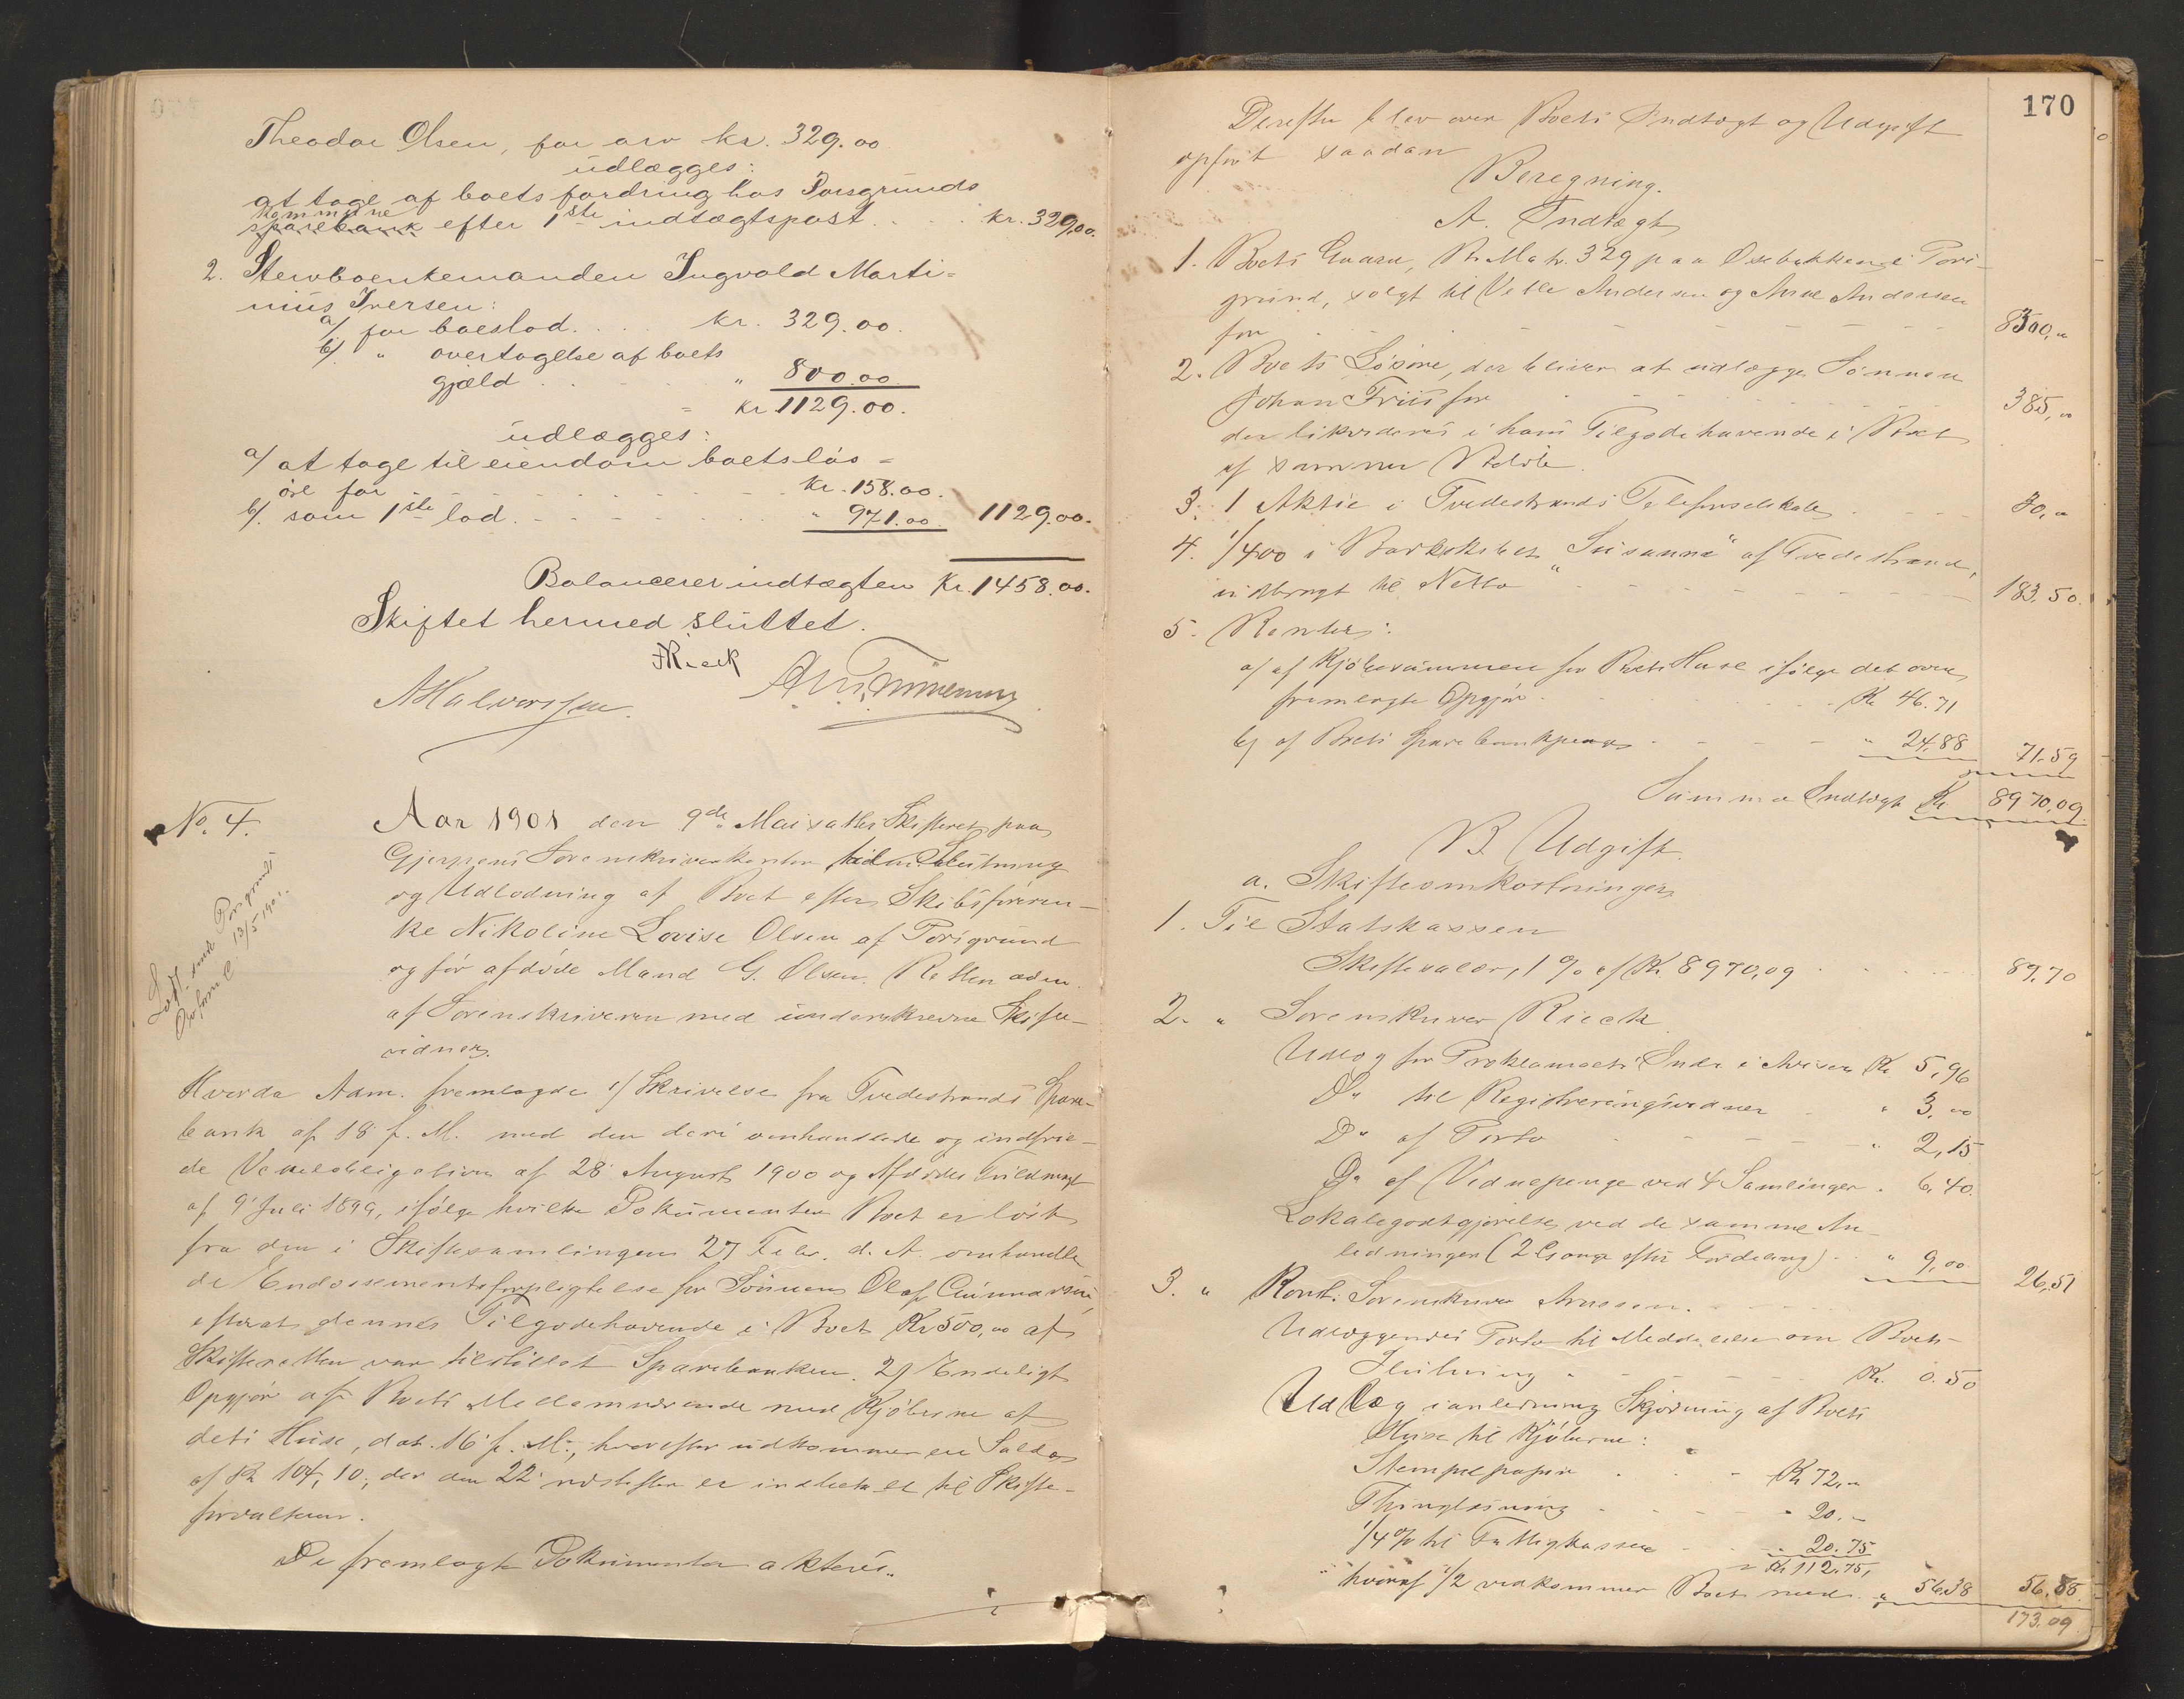 Theodor Olsen, for arv kr. 329.00
udlægges:
at tage af boets fordring hos Porsgrunds
kommune
sparebank efter 1ste indtægtspost . . . kr. 329,00.
2. Stervboenkemanden Ingvald Marti-
nius Iversen:
a/ for boeslod. . . . kr. 329.00.
b/. " overtagelse af boets
gjæld . . . . " 800.00.
= kr 1129.00.
udlægges:
a/ at tage til eiendom boets løs-
øre for . . . kr. 158.00.
b/. som 1ste lod. . . . " 971.00 1129.00.
Balancerer indtægten Kr. 1458.00.
Skiftet hermed sluttet.
FRieck
AHalvorsen.
No. 4.
Aar 1901 den 9de Mai sattes Skifteret paa
Gjerpens Sorenskriverkontor til Slutning
og Udlodning af Boet efter Skibsføreren-
ke Nikoline Lovise Olsen af Porsgrund
og før afdøde Mand G. Olsen. Retten adm.
af Sorenskriveren med underskrevne Skifte-
vidner.
Hvorda Adm. fremlagde 1/ Skrivelse fra Tvedestrands Spare-
bank af 18 f. M. med den deri omhandlede og indfrie-
de Vexelobligation af 28 August 1900 og Afdødes
af 9 Juli 1899, ifølge hvilke Dokumenter Boet er løst
fra den i Skiftesamlingen 27 Febr. d. A. omhandle
de Endossementsforpligtelse for Sønnen Olaf
efterat dennes Tilgodehavende i Boet Kr 500,00 af
Skifteretten var tilstillet Sparebanken. 2/ Endeligt
Opgjør af Boets Mellemværende med Kjøberne af
dets Huse, dat. 16 f. M., hvorefter udkommer en Saldo
af Kr 104,10, der den 22 næstefter er indbetalt til Skifte-
forvalteren.
De fremlagte Dokumenter akteres.
170
Derefter blev over Boets Indtægt og Udgift
opført saadan
Beregning.
A. Indtægt
1. Boets Gaard, Br. Matr. 329 paa Osebakken i Pors-
grund, solgt til Andersen og Andersen
for 8300,"
2. Boets Løsøre, der bliver at udlægge Sønnen
Johan Friis for 385,00
der likvideres i hans Tilgodehavende i Boet
af samme Beløb.
3. 1 Aktie i Tvedestrands Telefonselskab 30,"
4. 1/400 i Barkskibet "Susanna" af Tvedestrand,
indbragt til Netto 183.50.
5. Renter:
a/ af Kjøbesummen for Boets Huse ifølge det oven
fremlagte Opgjør Kr 46.71
b/ af Boets Sparebankpenge " 24.88 71.59
Summa Indtægt Kr 8970,09
B. Udgift.
a. Skifteomkostninger
1. Til Statskassen
Skiftesalær, 1 % af Kr. 8970,09 89,70
2. " Sorenskriver Rieck
Udlæg for Proklamaets Indr. i Avisen Kr 5,96
Do til Registreringsvidner " 3,00
Do af Porto " 2,15
Do af Vidnepenge ved 4 Samlinger " 6.40.
Lokalegodtgjørelse ved de samme An-
ledninger (2 Gange efter Fordeling) " 9,00 26,51
3. " Konst. Sorenskriver
Udlæggendes Porto til Meddelelse om Boets
Slutning Kr. 0.50
Udlæg i anledning Skjødning af Boets
Huse til Kjøberne:
Stempelpapir Kr 72,"
Thinglæsning " 20,"
1/4 % til Fattigkassen " 20.75
= Kr 112.75,
hvoraf 1/2 vedkommer Boet med " 56.38 56,88
173.09